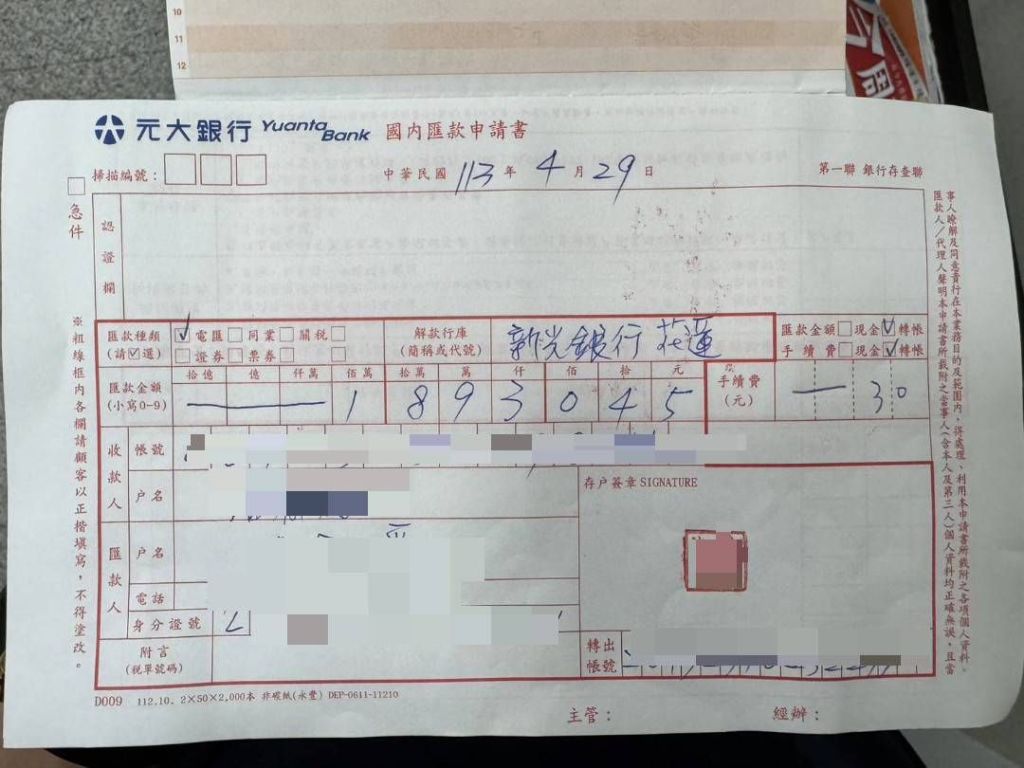 10
11
12
元大銀行 Yuanta Bank 國內匯款申請書
掃描編號：
中華民國 113 年 4 月 29 日
第一聯 銀行存查聯
急件
認證欄
匯款種類 (請☑選)
✓電匯 □同業 □關稅 □
□證券 □票券 □ □
解款行庫 (簡稱或代號)
新光銀行 花蓮
匯款金額 □現金 ☑轉帳
手續費 □現金 ☑轉帳
匯款金額 (小寫0-9)
拾億 億 仟萬 佰萬 拾萬 萬 仟 佰 拾 元
— 1 8 9 3 0 4 5
手續費 (元)
— 3 0
收款人
帳號
戶名
存戶簽章 SIGNATURE
匯款人
戶名
電話
身分證號 L
附言 (稅單號碼)
轉出帳號
※粗線框內各欄請顧客以正楷填寫，不得塗改。
匯款人／代理人聲明本申請書所載附之當事人(含本人及第三人)個人資料均正確無誤，且當
事人瞭解及同意貴行在本業務目的及範圍內，得處理、利用本申請書所載附之各項個人資料。
D009 112.10. 2×50×2,000本 非碳紙(永豐) DEP-0611-11210
主管：
經辦：